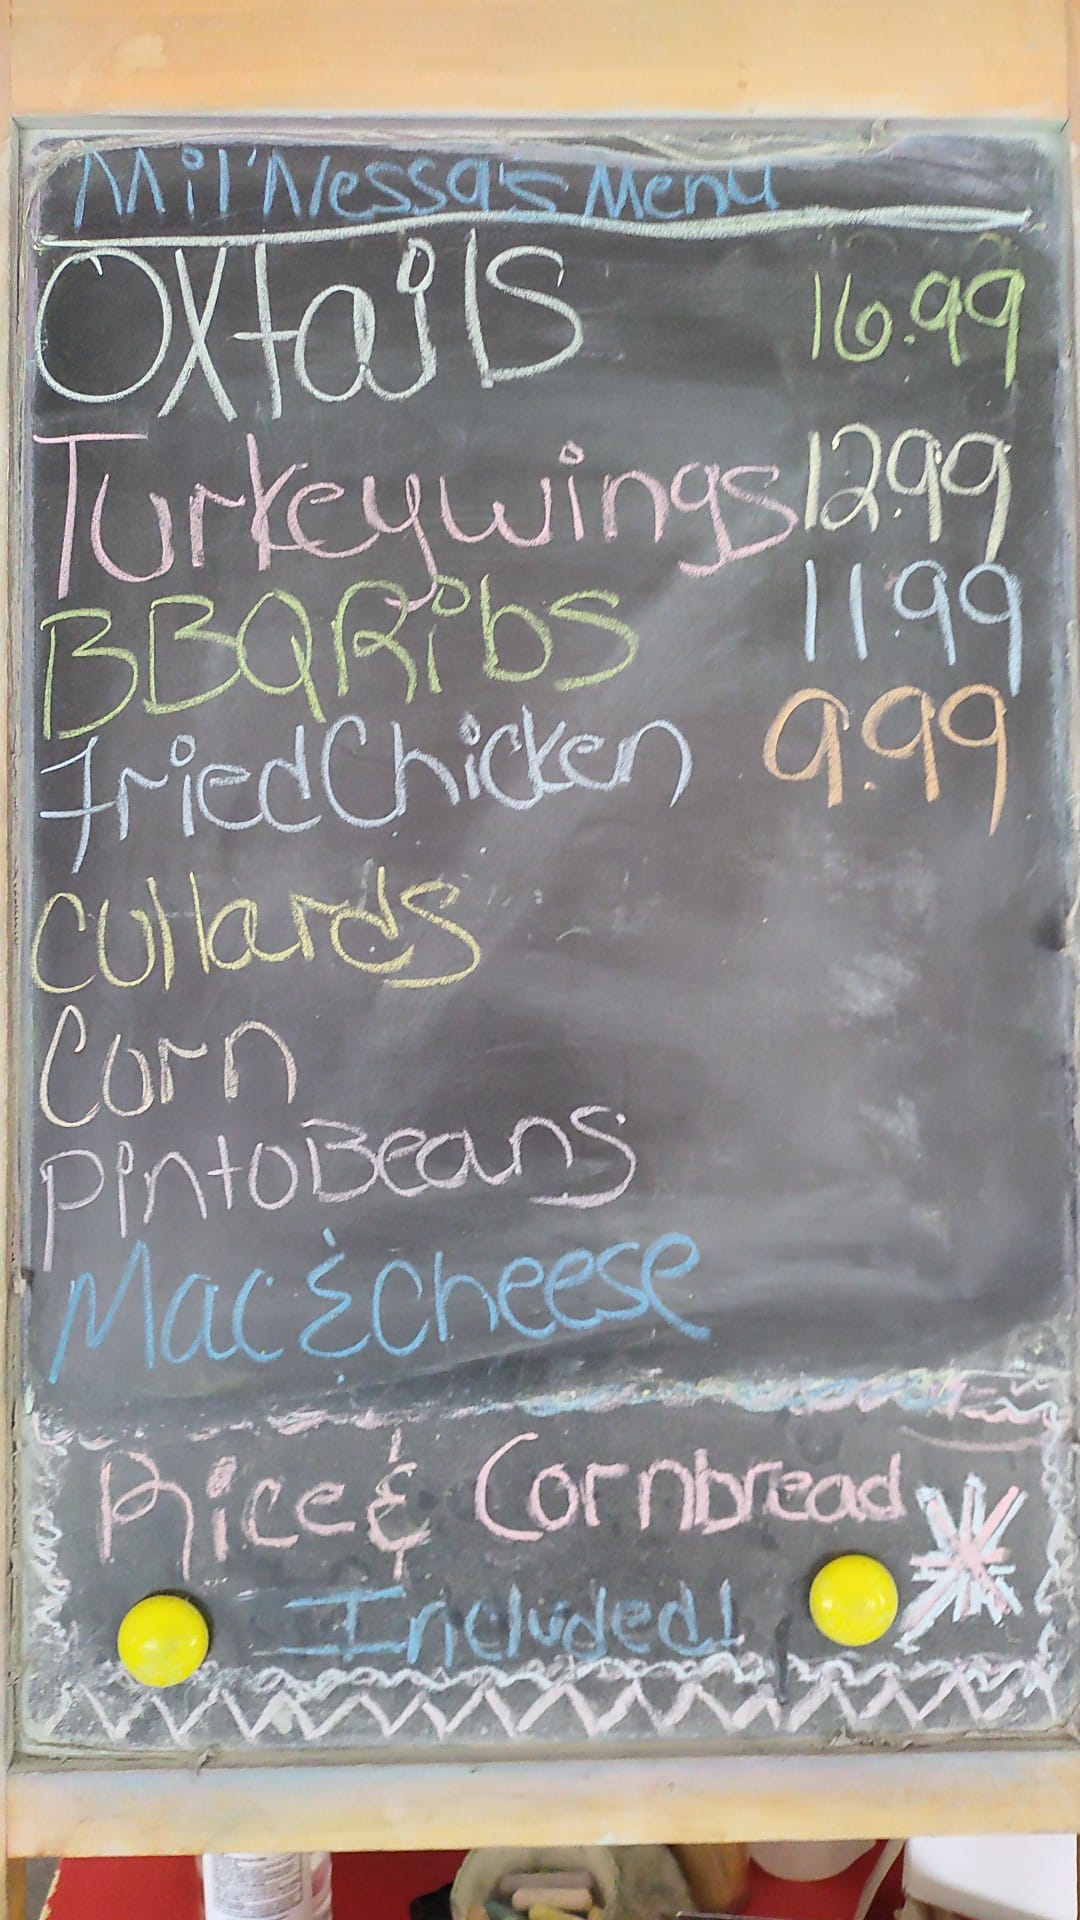 Mil'Nessa's Menu
Oxtails 16.99
Turkey wings 12.99
BBQ Ribs 11.99
Fried Chicken 9.99
Collards
Corn
Pinto Beans
Mac & Cheese
Rice & Cornbread
Included!